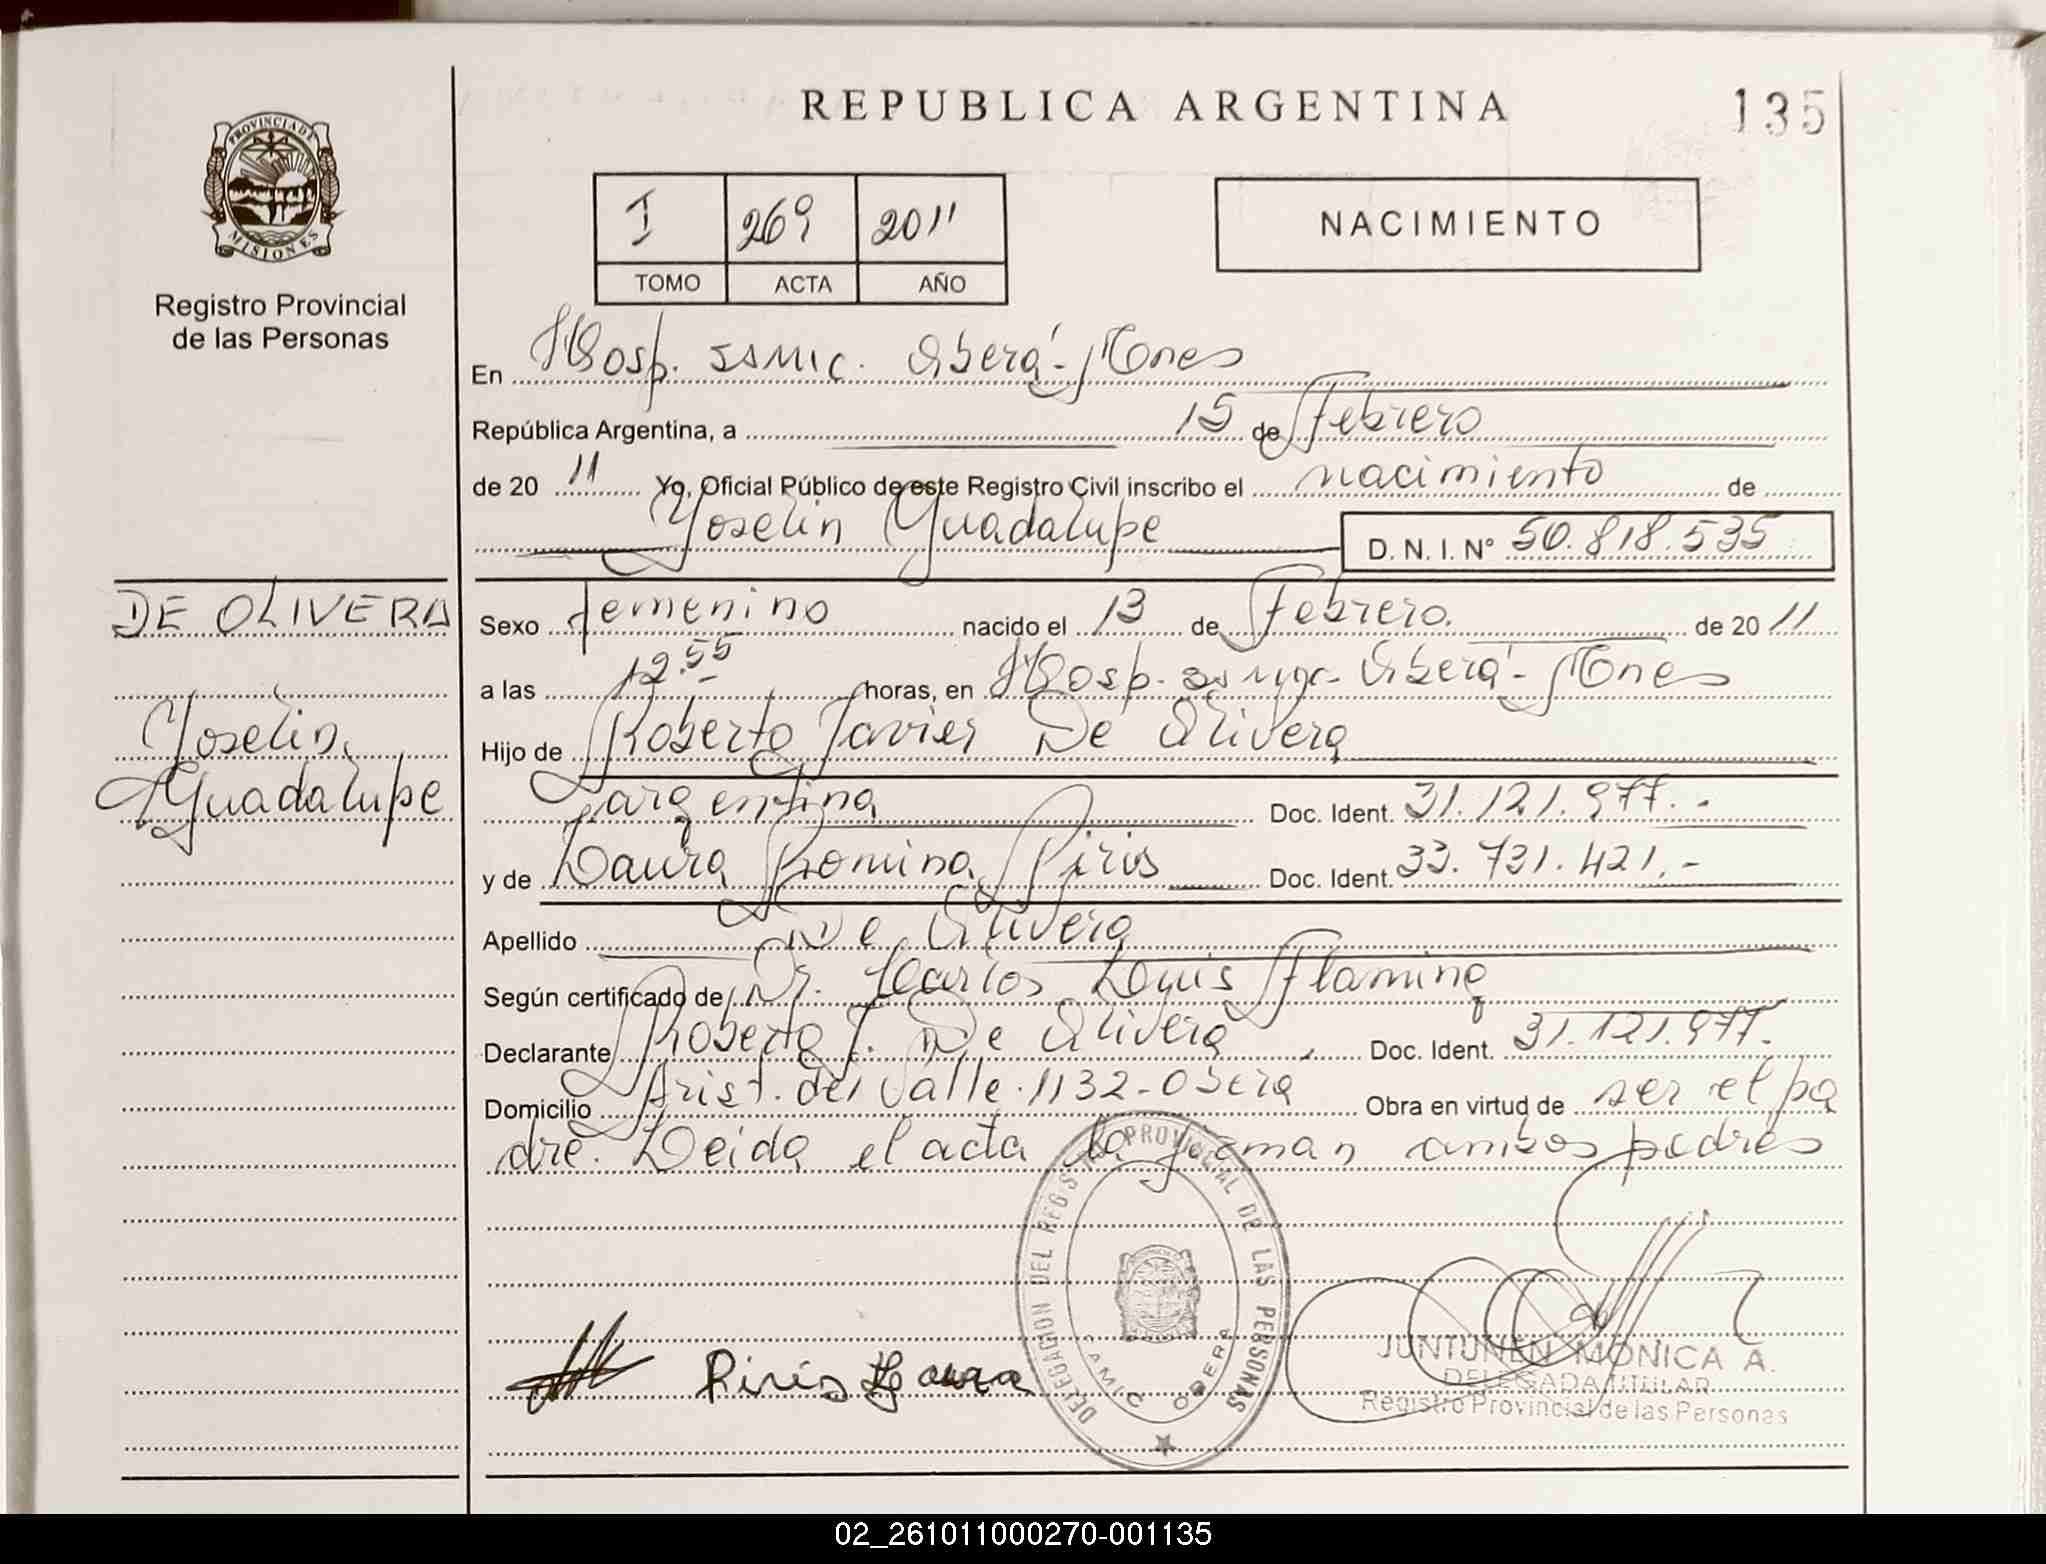 REPUBLICA ARGENTINA
135
PROVINCIA DE
MISIONES
Registro Provincial
de las Personas
I 269 2011
TOMO ACTA AÑO
NACIMIENTO
En Hosp. SAMIC. Oberá - Mnes
República Argentina, a 15 de Febrero
de 20 11 Yo, Oficial Público de este Registro Civil inscribo el nacimiento de
Yoselin Guadalupe D. N. I. Nº 50.818.535
DE OLIVERA
Yoselin
Guadalupe
Sexo femenino nacido el 13 de Febrero. de 20 11
a las 12.55 horas, en Hosp. Samic - Oberá - Mnes
Hijo de Roberto Javier De Olivera
argentina Doc. Ident. 31.121.977.-
y de Laura Romina Piris Doc. Ident. 33.731.421.-
Apellido De Olivera
Según certificado de Dr. Carlos Luis Flamina
Declarante Roberto J. De Olivera Doc. Ident. 31.121.977.
Domicilio Arist. del Valle 1132 - Oberá Obra en virtud de ser el pa
dre. Leida el acta la firman ambos padres
DELEGACION DEL REGISTRO PROVINCIAL DE LAS PERSONAS
SAMIC OBERA
Piris Laura
JUNTUNEN MONICA A.
DELEGADA TITULAR
Registro Provincial de las Personas
02_261011000270-001135